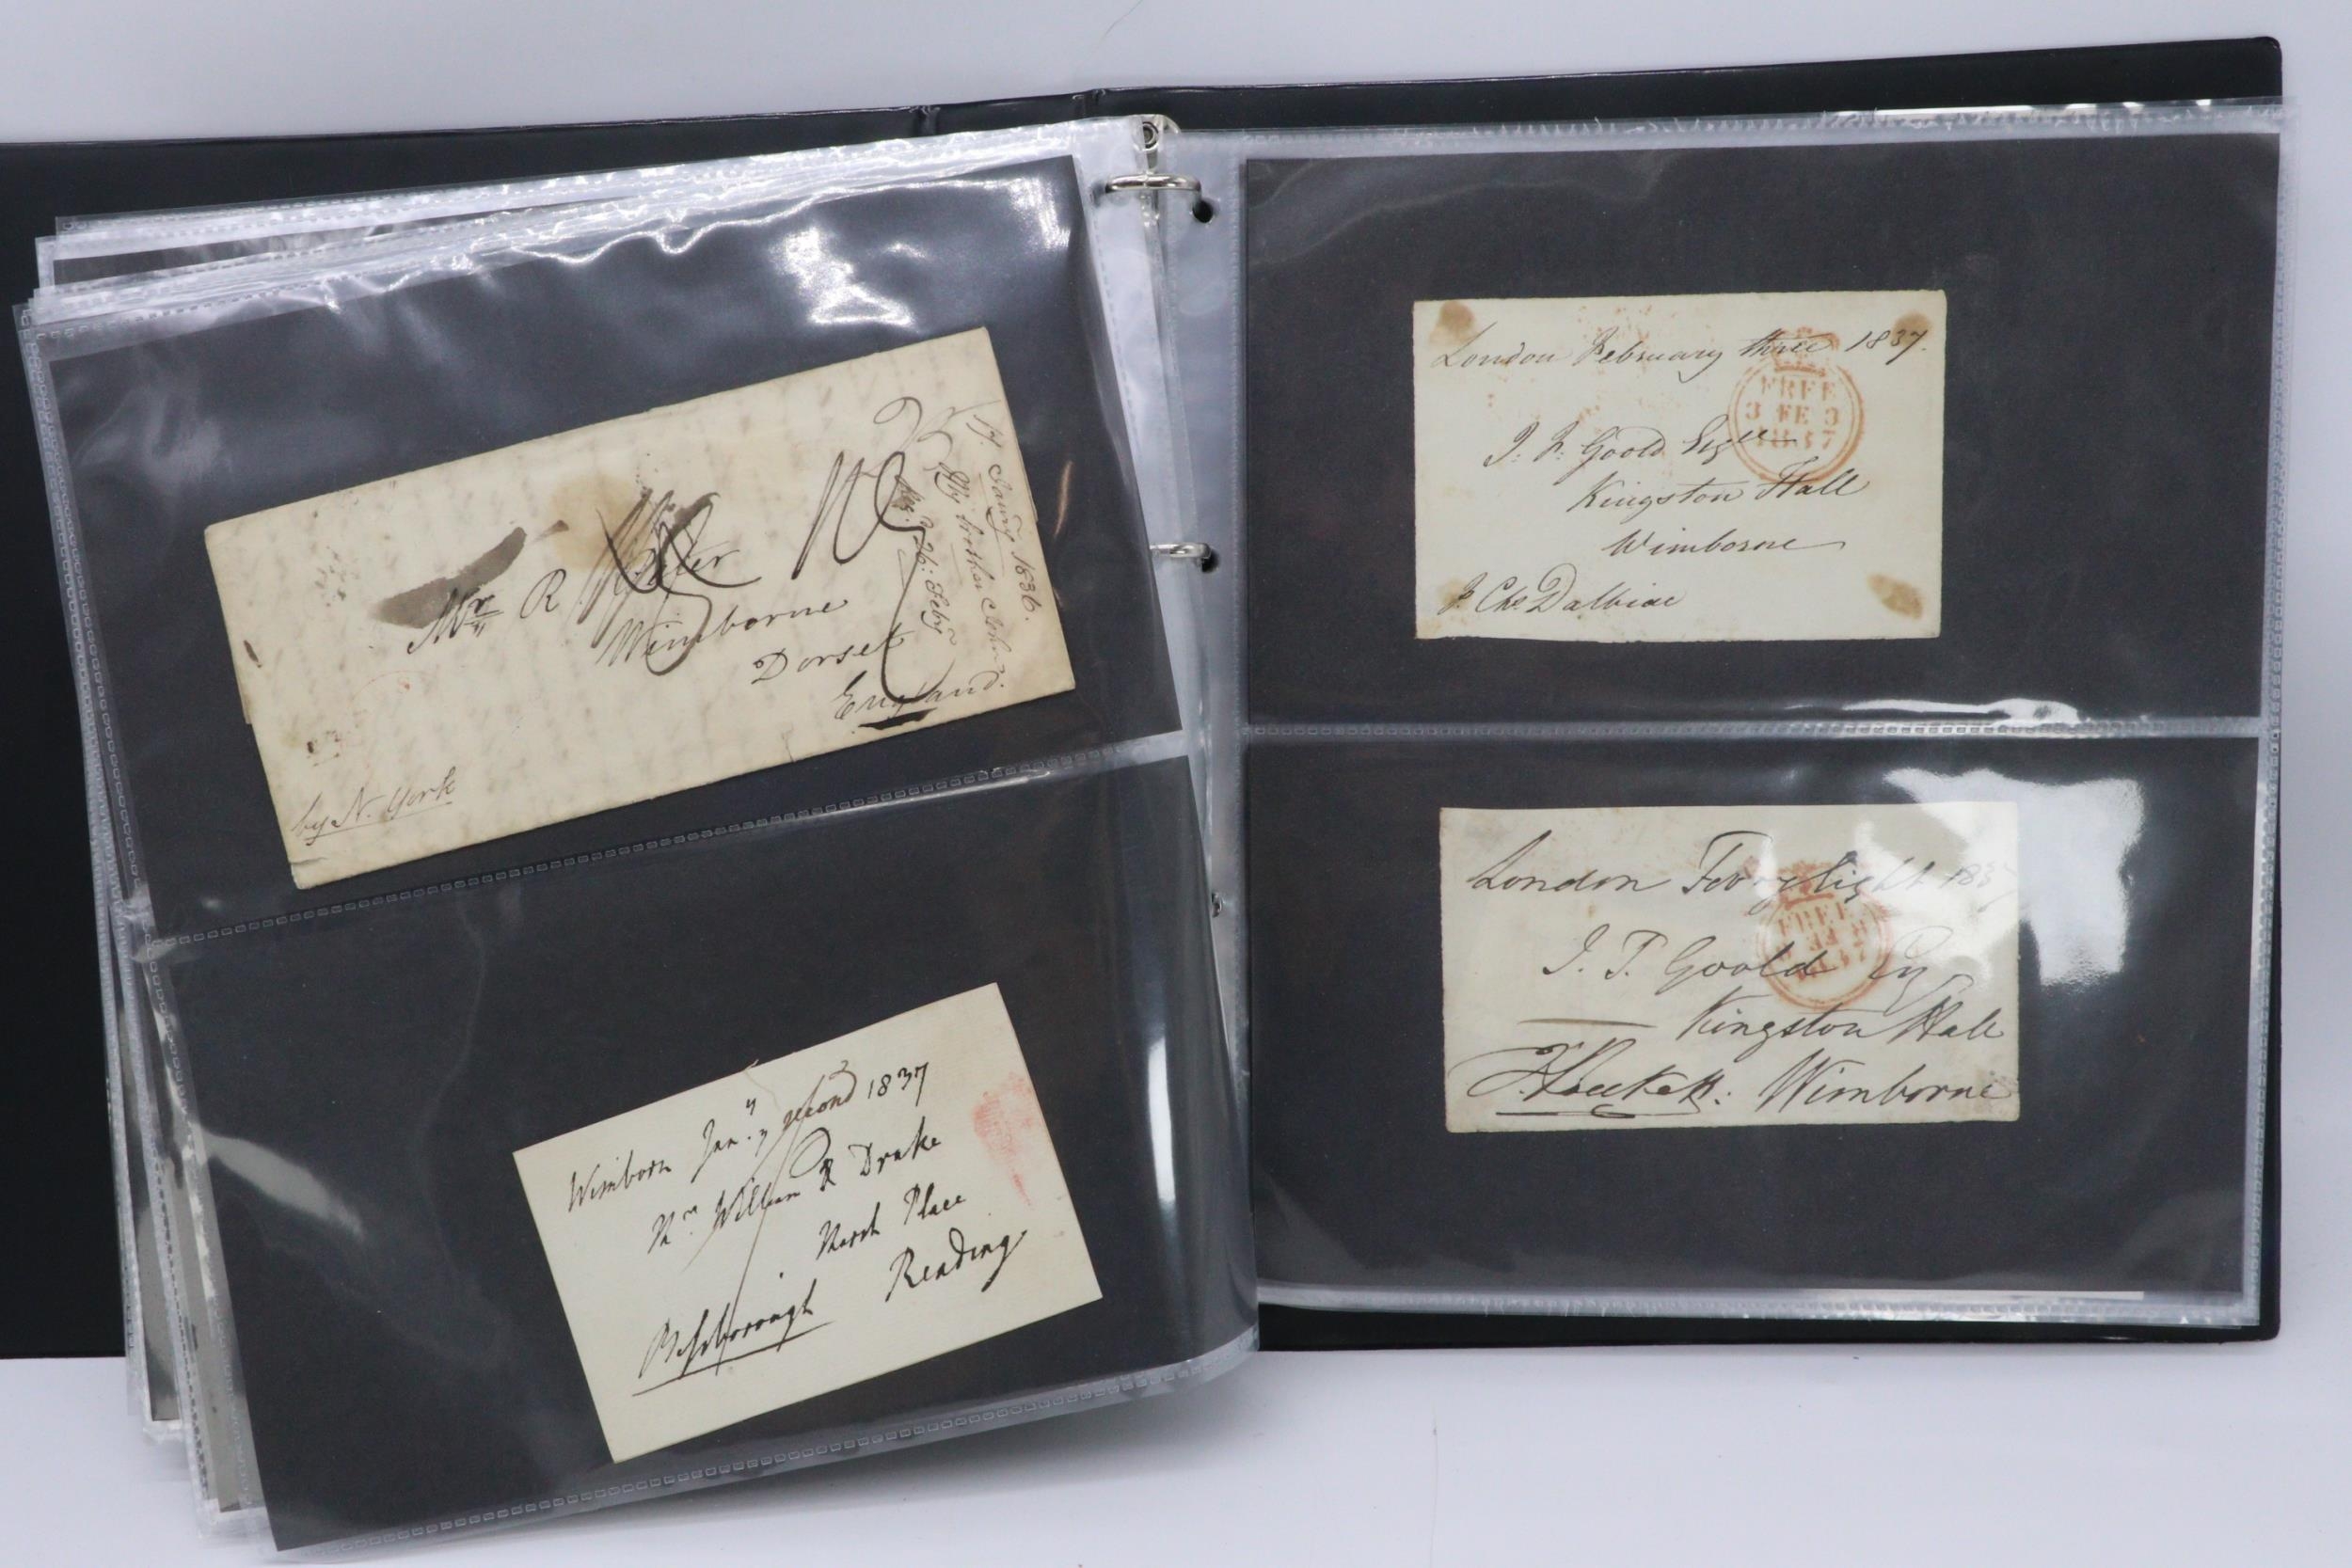 Mr R
Wimborne
Dorset
England.
by N. York
17 Jany 1836.
26: Feby
Wimborn Jan.y second 1837
Mr William R Drake
Place
Reading
Bessborough
London February three 1837.
J. F. Goold Esqre
Kingston Hall
Wimborne
J. Chs Dalbiac
FREE
3 FE 3
1837
London Febry eight 1837
J. F. Goold Esq
Kingston Hall
Wimborne
FREE